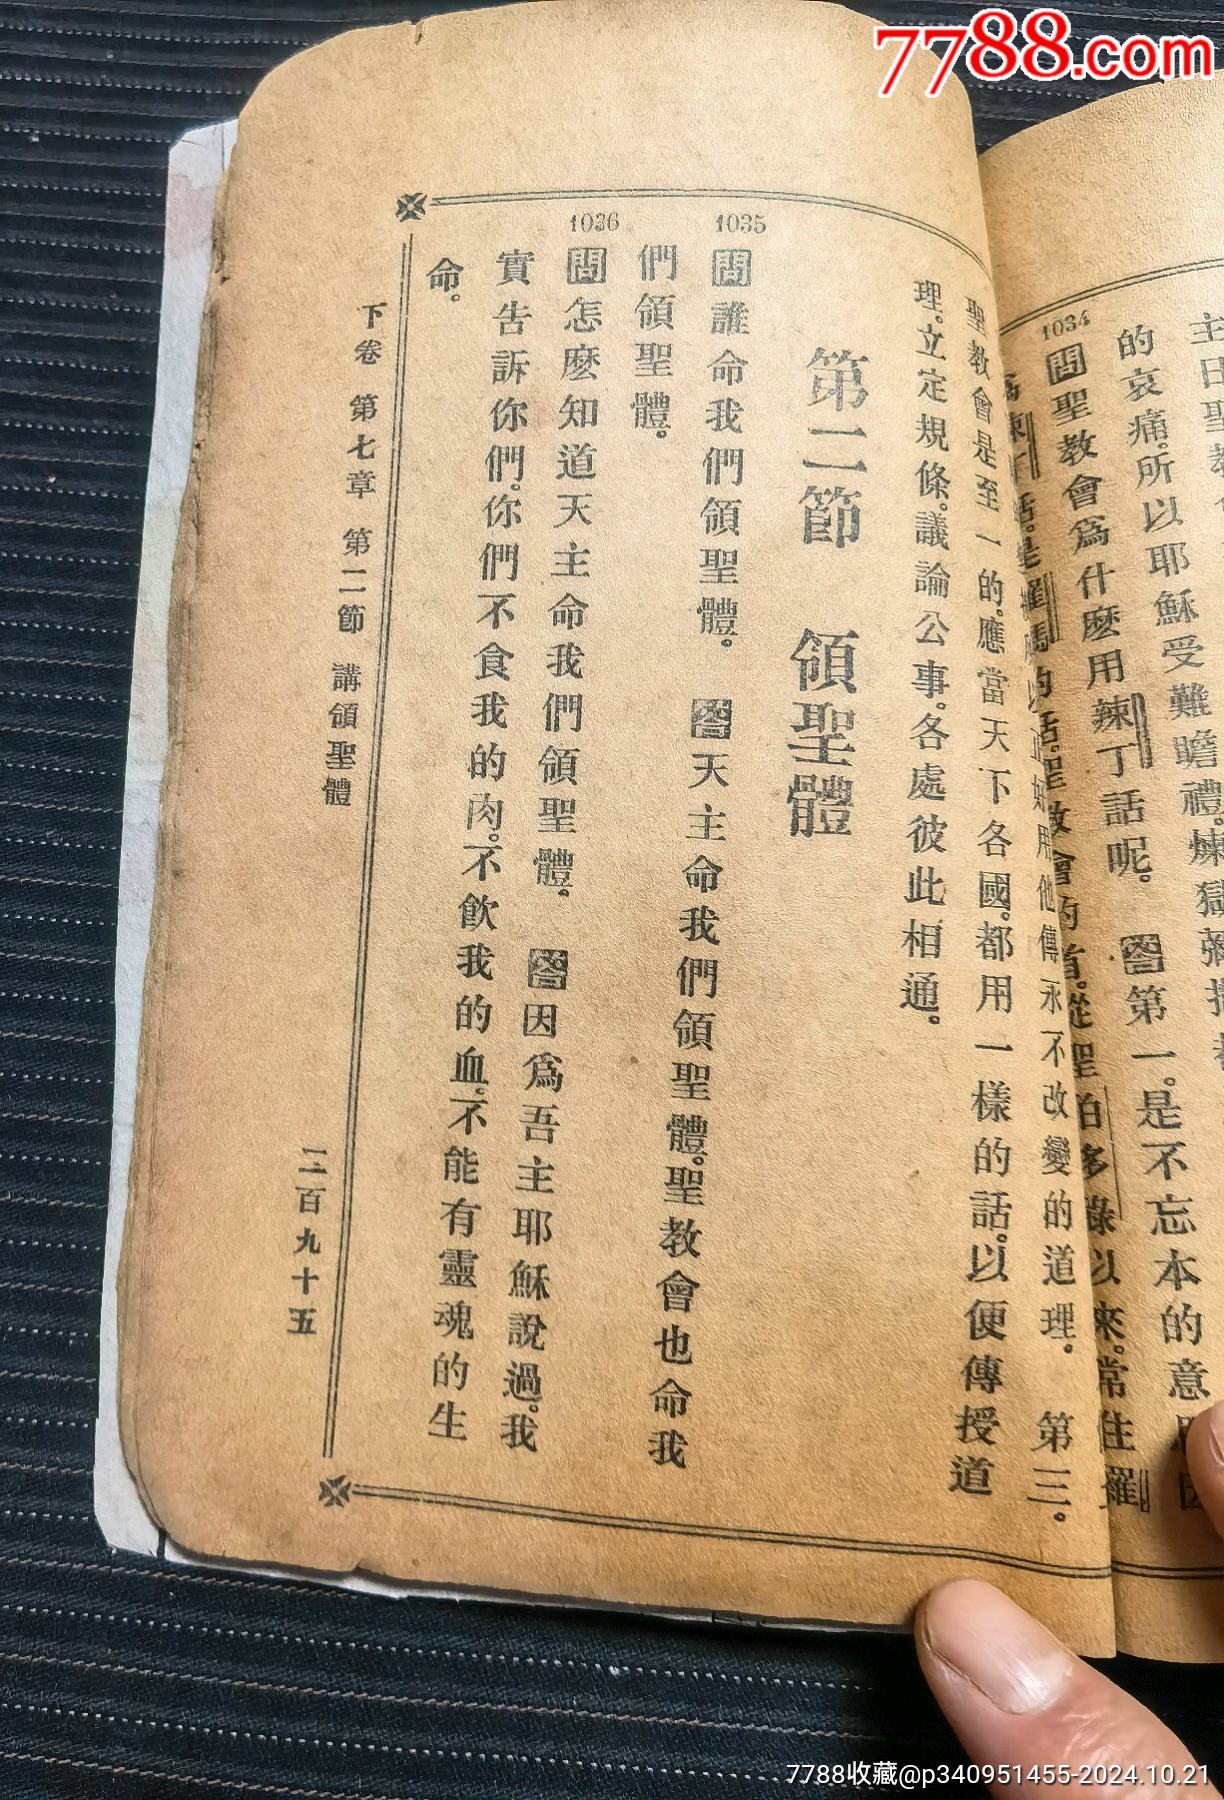 7788.com
1034
問聖教會爲什麽用辣丁話呢。 答第一。是不忘本的意
的哀痛。所以耶穌受難瞻禮。煉獄彌撒
聖伯多祿以來。常住羅
傳永不改變的道理。 第三。
聖教會是至一的。應當天下各國。都用一樣的話。以便傳授道
理。立定規條。議論公事。各處彼此相通。
第二節 領聖體
1035
問誰命我們領聖體。 答天主命我們領聖體。聖教會也命我
們領聖體。
1036
問怎麽知道天主命我們領聖體。 答因爲吾主耶穌說過。我
實告訴你們。你們不食我的肉。不飲我的血。不能有靈魂的生
命。
下卷 第七章 第二節 講領聖體
二百九十五
7788收藏@p340951455-2024.10.21